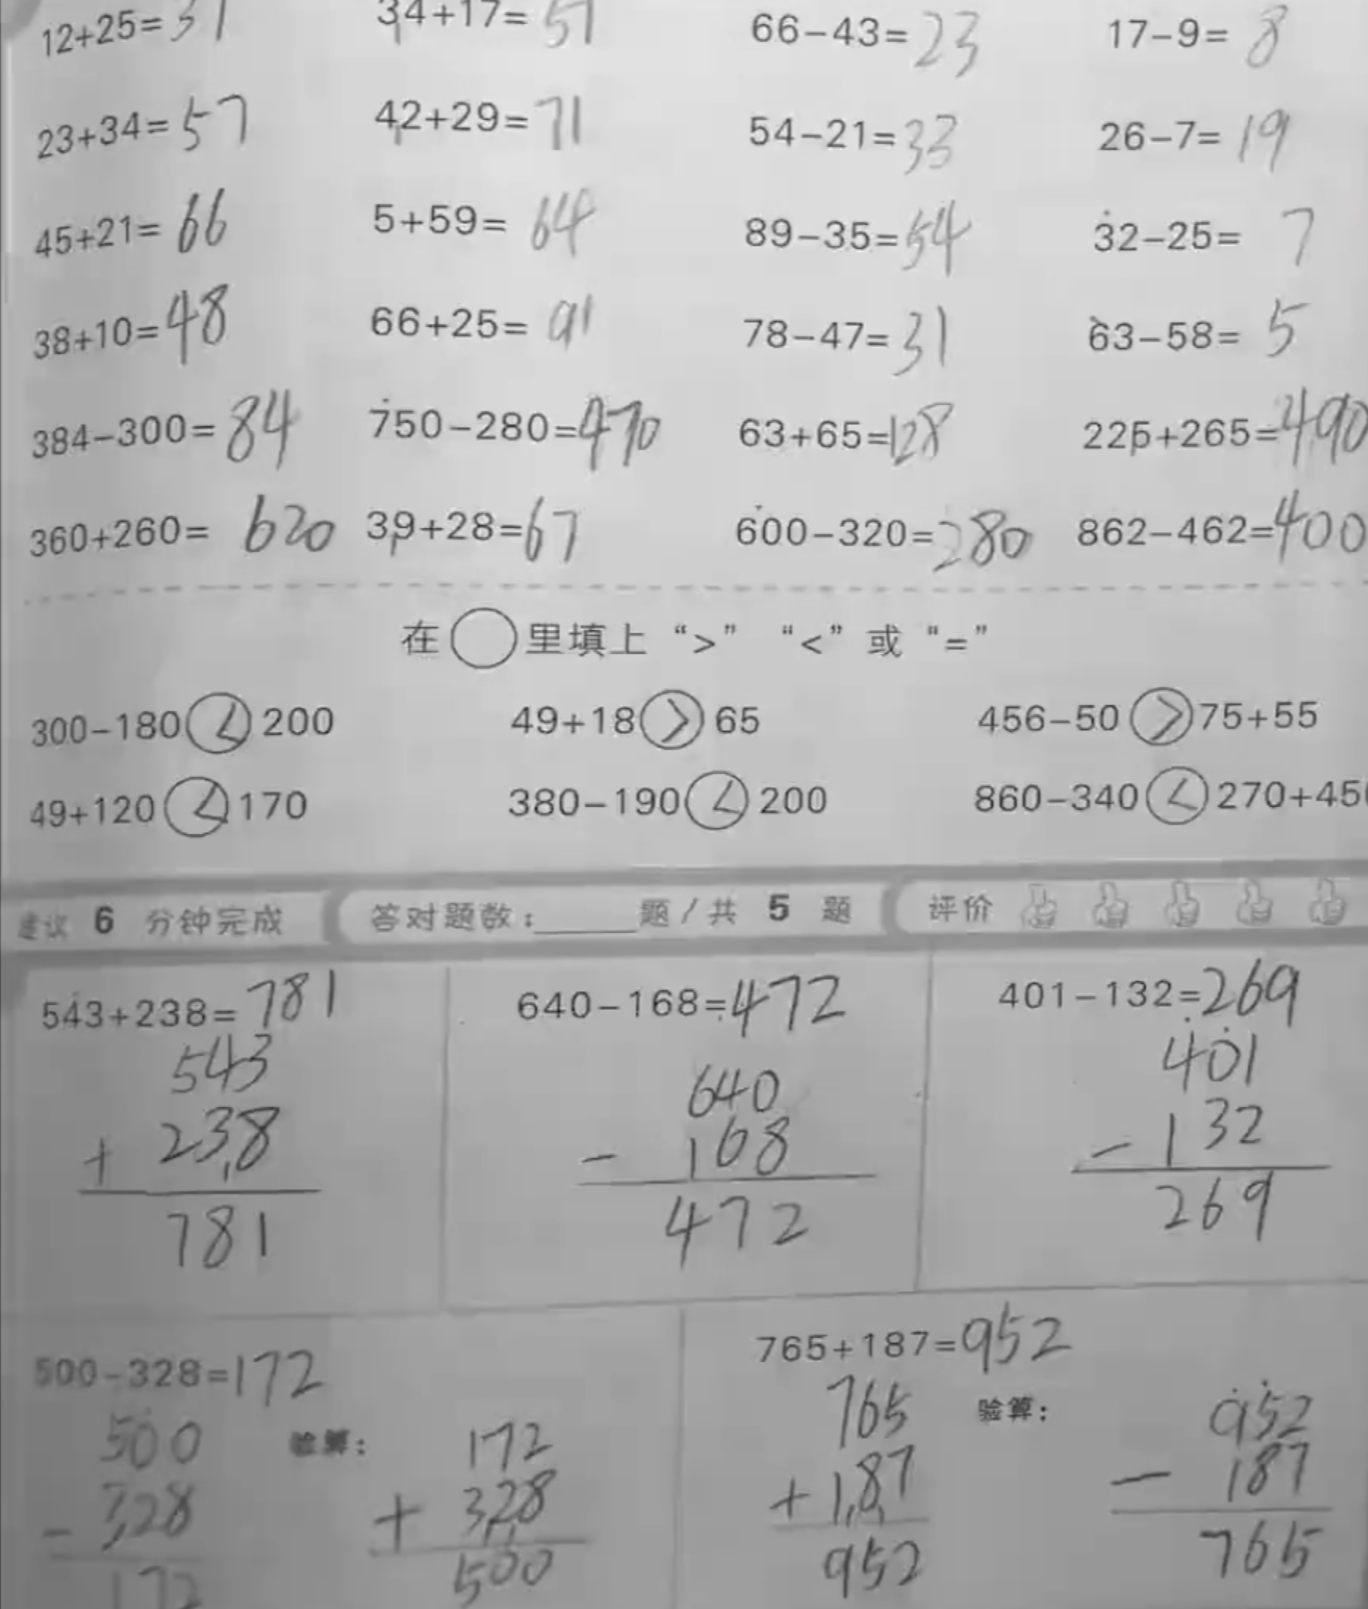 12+25=37 34+17=51 66-43=23 17-9=8
23+34=57 42+29=71 54-21=33 26-7=19
45+21=66 5+59=64 89-35=54 32-25=7
38+10=48 66+25=91 78-47=31 63-58=5
384-300=84 750-280=470 63+65=128 225+265=490
360+260=620 39+28=67 600-320=280 862-462=400
在○里填上“>”“<”或“=”
300-180<200 49+18>65 456-50>75+55
49+120<170 380-190<200 860-340<270+45
建议 6 分钟完成 答对题数:____题/共 5 题 评价
543+238=781 640-168=472 401-132=269
543 640 401
+ 238 - 168 - 132
781 472 269
500-328=172 765+187=952
500 验算: 172 765 验算: 952
- 328 + 328 + 187 - 187
172 500 952 765